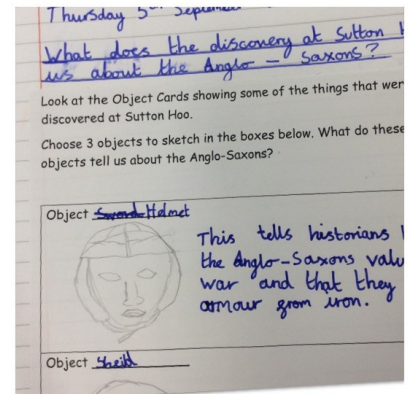 Thursday 5th September
What does the discovery at Sutton H
us about the Anglo - Saxons?
Look at the Object Cards showing some of the things that wer
discovered at Sutton Hoo.
Choose 3 objects to sketch in the boxes below. What do these
objects tell us about the Anglo-Saxons?
Object Sword Helmet
This tells historians
the Anglo-Saxons valu
war and that they
armour from iron.
Object Sheild